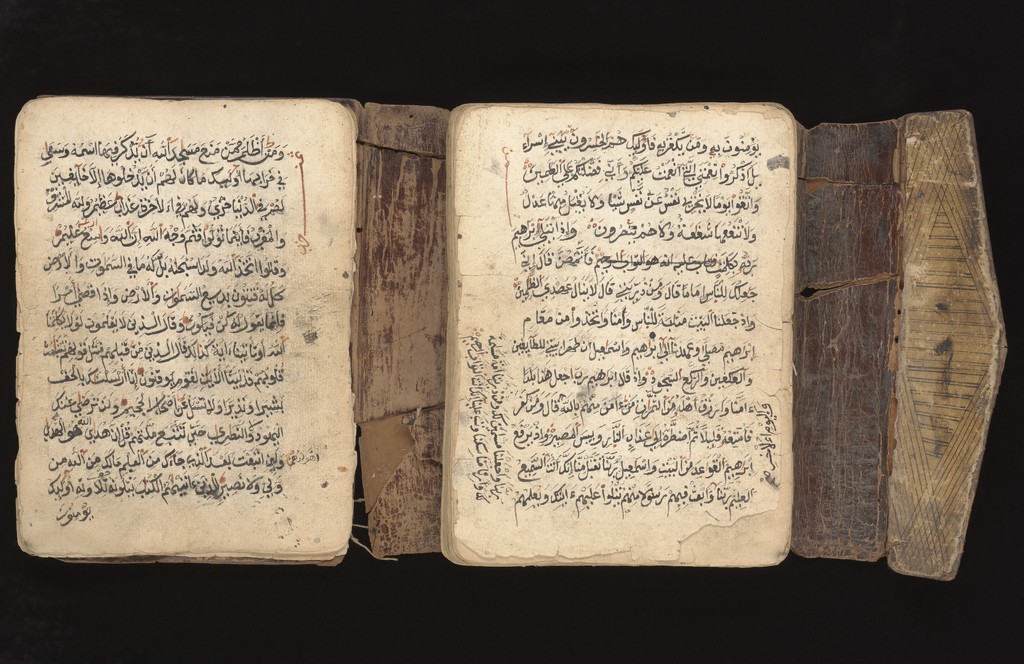 ومن أظلم ممن منع مسجد الله أن يذكر فيها اسمه وسعى
في خرابها أولئك ما كان لهم أن يدخلوها إلا خائفين
لهم في الدنيا خزي ولهم في الآخرة عذاب عظيم ولله المشرق
والمغرب فأينما تولوا فثم وجه الله إن الله واسع عليم
وقالوا اتخذ الله ولدا سبحنه بل له ما في السموت والأرض
كل له قنتون بديع السموت والأرض وإذا قضى أمرا
فإنما يقول له كن فيكون وقال الذين لا يعلمون لولا يكلمنا
الله أو تأتينا ءاية كذلك قال الذين من قبلهم مثل قولهم تشبهت
قلوبهم قد بينا الأيت لقوم يوقنون إنا أرسلنك بالحق
بشيرا ونذيرا ولا تسئل عن أصحب الجحيم ولن ترضى عنك
اليهود ولا النصرى حتى تتبع ملتهم قل إن هدى الله هو الهدى
ولئن اتبعت أهواءهم بعد الذي جاءك من العلم ما لك من الله من
ولي ولا نصير الذين ءاتينهم الكتب يتلونه حق تلاوته أولئك
يؤمنون
يؤمنون به ومن يكفر به فأولئك هم الخسرون يبني إسراء
يل اذكروا نعمتي التي أنعمت عليكم وأني فضلتكم على العلمين
واتقوا يوما لا تجزي نفس عن نفس شيئا ولا يقبل منها عدل
ولا تنفعها شفعة ولا هم ينصرون وإذ ابتلى إبرهيم
ربه بكلمت فتاب عليه إنه هو التواب الرحيم فأتمهن قال إني
جعلك للناس إماما قال ومن ذريتي قال لا ينال عهدي الظلمين
وإذ جعلنا البيت مثابة للناس وأمنا واتخذوا من مقام
إبرهيم مصلى وعهدنا إلى إبرهيم وإسمعيل أن طهرا بيتي للطائفين
والعكفين والركع السجود وإذ قال إبرهيم رب اجعل هذا بلدا
ءامنا وارزق أهله من الثمرت من ءامن منهم بالله قال ومن كفر
فأمتعه قليلا ثم أضطره إلى عذاب النار وبئس المصير وإذ يرفع
إبرهيم القواعد من البيت وإسمعيل ربنا تقبل منا إنك أنت السميع
العليم ربنا وابعث فيهم رسولا منهم يتلوا عليهم ءايتك ويعلمهم
ربنا واجعلنا مسلمين لك ومن ذريتنا أمة مسلمة
لك وأرنا مناسكنا وتب علينا إنك أنت التواب الرحيم